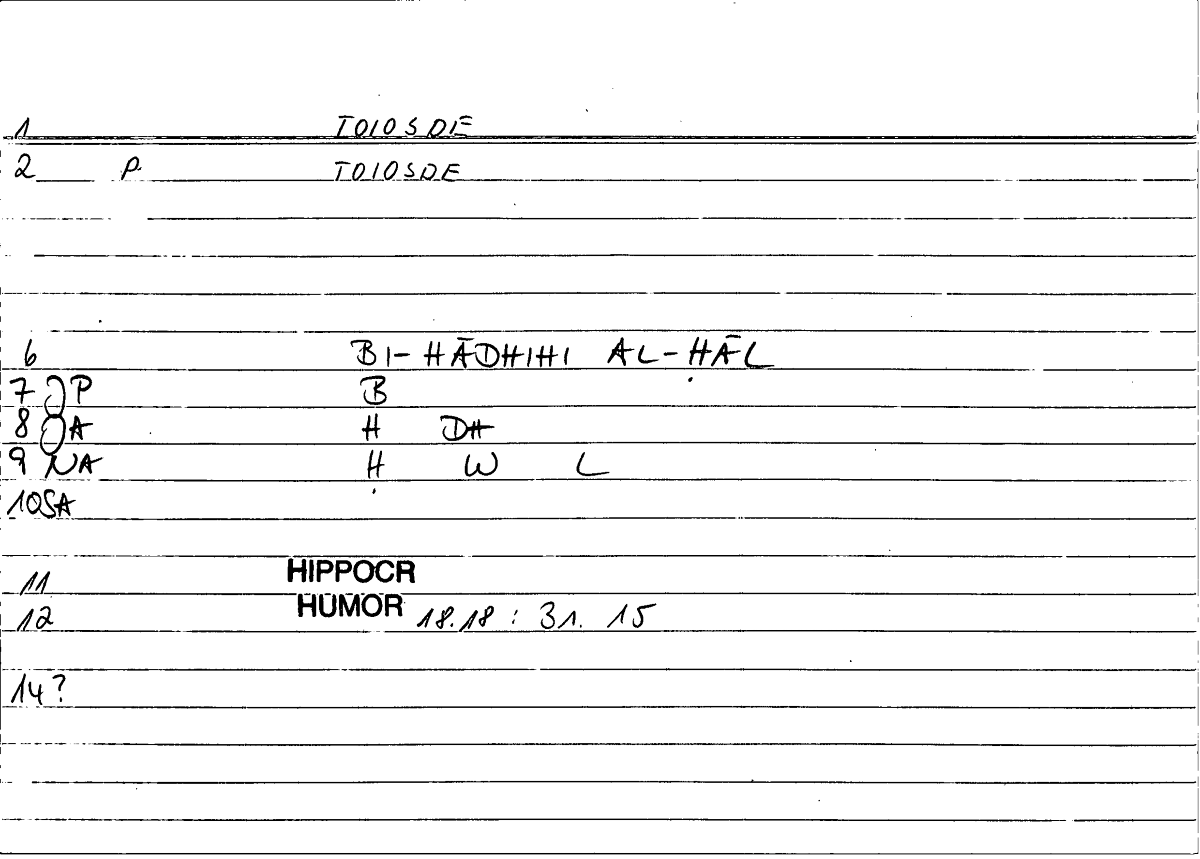 1 TOIOSDE
2 P. TOIOSDE
6 BI-HĀDHIHI AL-ḤĀL
7 JP B
8 JA H DH
9 NA Ḥ W L
10 SA
11 HIPPOCR
12 HUMOR 18.18 : 31. 15
14?